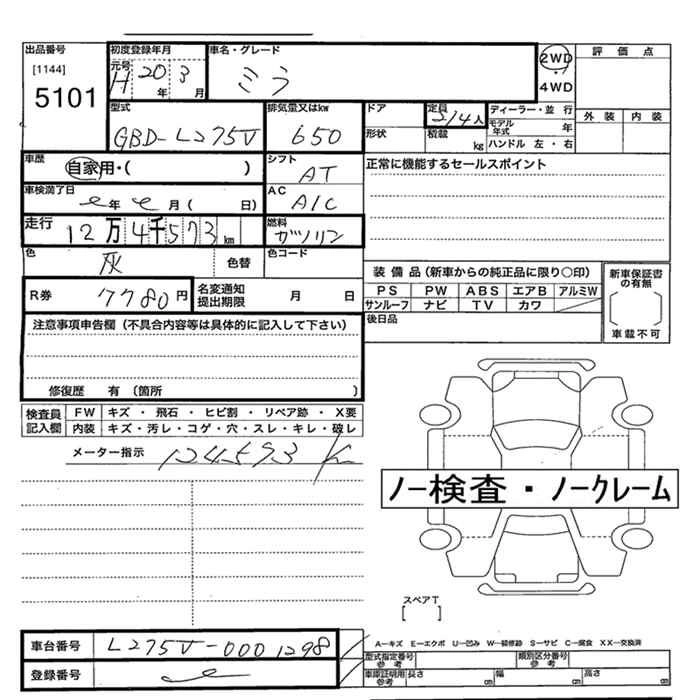 出品番号 初度登録年月 車名・グレード 2WD 評価点
[1144] 元号 H 20年 3月 ミラ ・
5101 4WD
型式 排気量又はkw ドア 定員 2/4人 ディーラー・並行 外装 内装
GBD-L275V 650 モデル年式 年
形状 積載 kg ハンドル 左・右
車歴 自家用・( ) シフト AT 正常に機能するセールスポイント
車検満了日 年 月 ( 日) AC A/C
走行 12万4千573km 燃料 ガソリン
色 灰 色替 色コード
装備品(新車からの純正品に限り○印) 新車保証書の有無
R券 7780円 名変通知提出期限 月 日 PS PW ABS エアB アルミW
サンルーフ ナビ TV カワ
注意事項申告欄(不具合内容等は具体的に記入して下さい) 後日品 車載不可
修復歴 有 (箇所 )
検査員 FW キズ・飛石・ヒビ割・リペア跡・X要
記入欄 内装 キズ・汚レ・コゲ・穴・スレ・キレ・破レ
メーター指示 124573 K
ノー検査・ノークレーム
スペアT
[ ]
車台番号 L275V-0001298 A–キズ E–エクボ U–凹み W–補修跡 S–サビ C–腐食 XX–交換済
型式指定番号 参考 類別区分番号 参考
登録番号 車庫証明用 参考 長さ cm 幅 cm 高さ cm